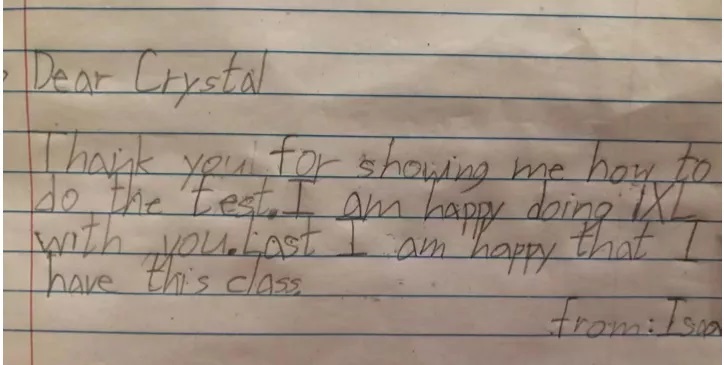 Dear Crystal
Thank you for showing me how to
do the test. I am happy doing IXL
with you. Last I am happy that I
have this class.
from: